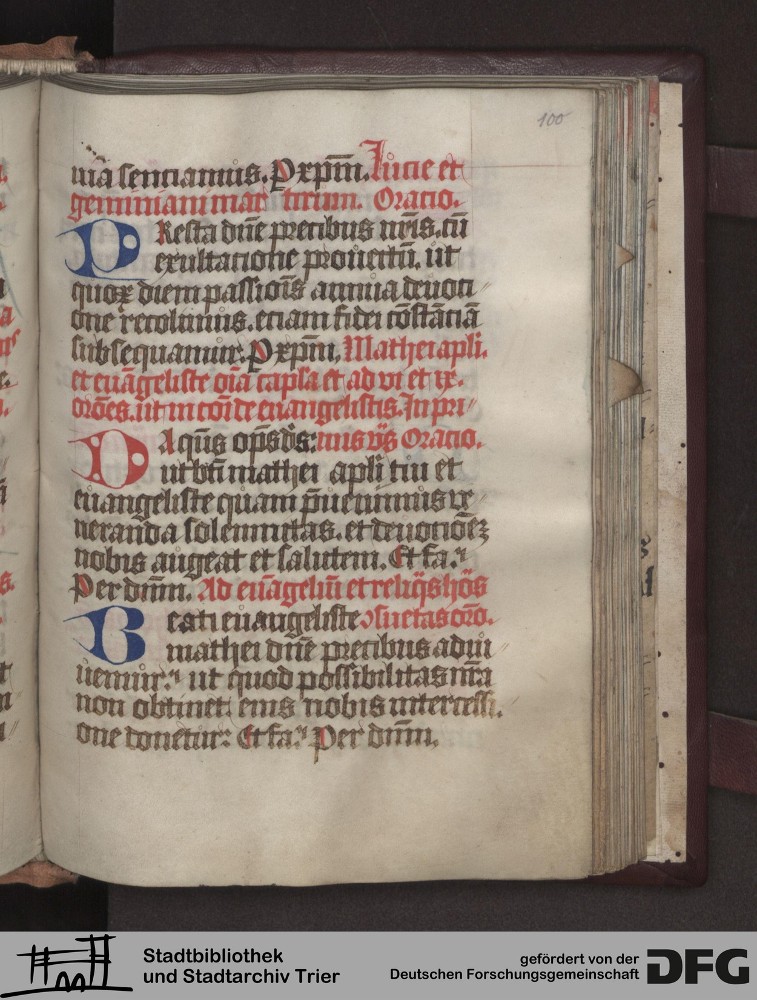 100
nia senciamus. P xp̄m̄. Lucie et
geminiani mar tirum. Oracio.
PResta dn̄e precibus nr̄is. cū
exultatione prouectū. ut
quoꝝ diem passiōis annua deuoti
one recolimus. etiam fidei cōstāciā
subsequamur. P xp̄m̄. Mathei apli.
et euāgeliste oīa capl̄a et ad vi et ix.
orōes. ut in cōi de euangelistis. In pri
DA qs̄ op̄s ds̄: mis vs̄ Oracio.
ut bt̄i mathei apl̄i tui et
euangeliste quam p̄uenimus ve
neranda solemnitas. et deuotiōeꝫ
nobis augeat et salutem. Et fa.
Per dn̄m. Ad euāgeliū et reliqs̄ hōs
Beati euangeliste ꝯsuetas orō.
mathei dn̄e precibus adiu
uemur: ut quod possibilitas nr̄a
non obtinet eius nobis intercessi.
one donetur: Et fa. Per dn̄m.
Stadtbibliothek
und Stadtarchiv Trier
gefördert von der
Deutschen Forschungsgemeinschaft
DFG